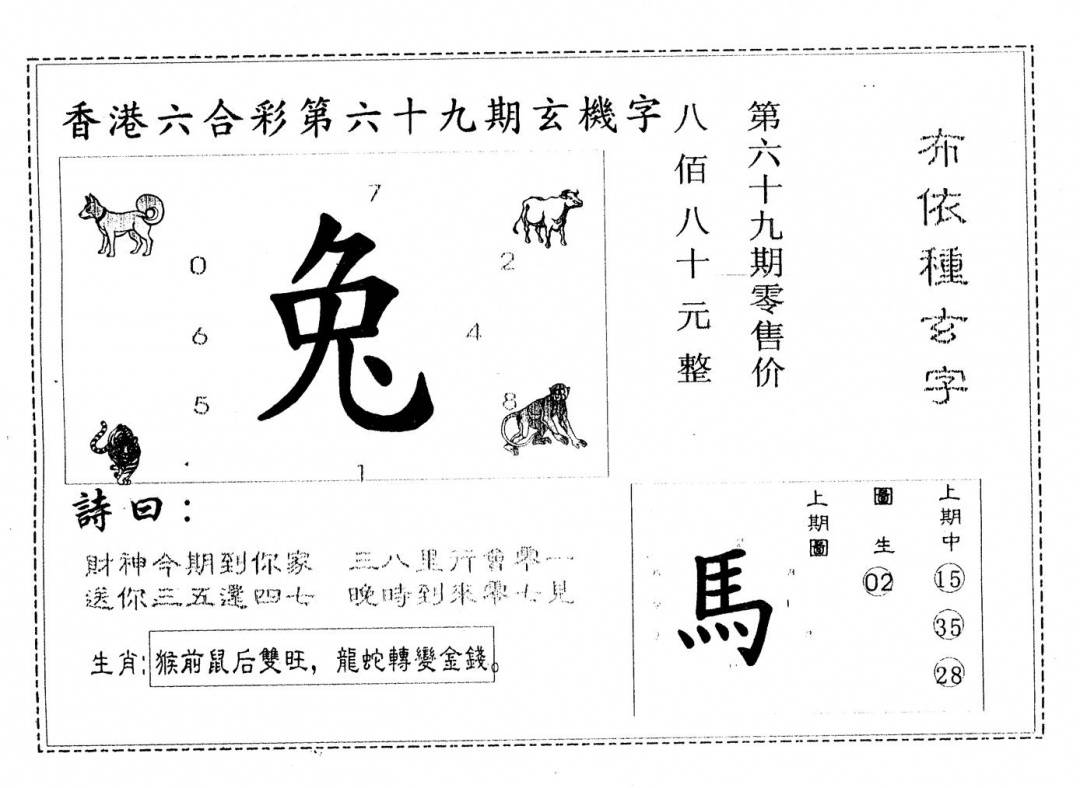 香港六合彩第六十九期玄機字
八佰八十元整
第六十九期零售价
布依種玄字
7
0
2
兔
6
4
5
8
1
詩曰：
財神今期到你家 三八里行會零一
送你三五還四七 晚時到來零七見
生肖: 猴前鼠后雙旺，龍蛇轉變金錢。
上期圖
馬
圖生
02
上期中
15
35
28